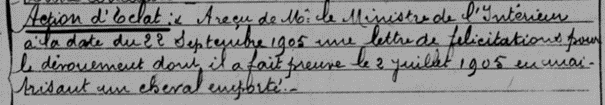 Action d'Eclat : A reçu de Mr. le Ministre de l'Intérieur
à la date du 22 Septembre 1905 une lettre de félicitations pour
le dévouement dont il a fait preuve le 2 juillet 1905 en maî-
trisant un cheval emporté.-